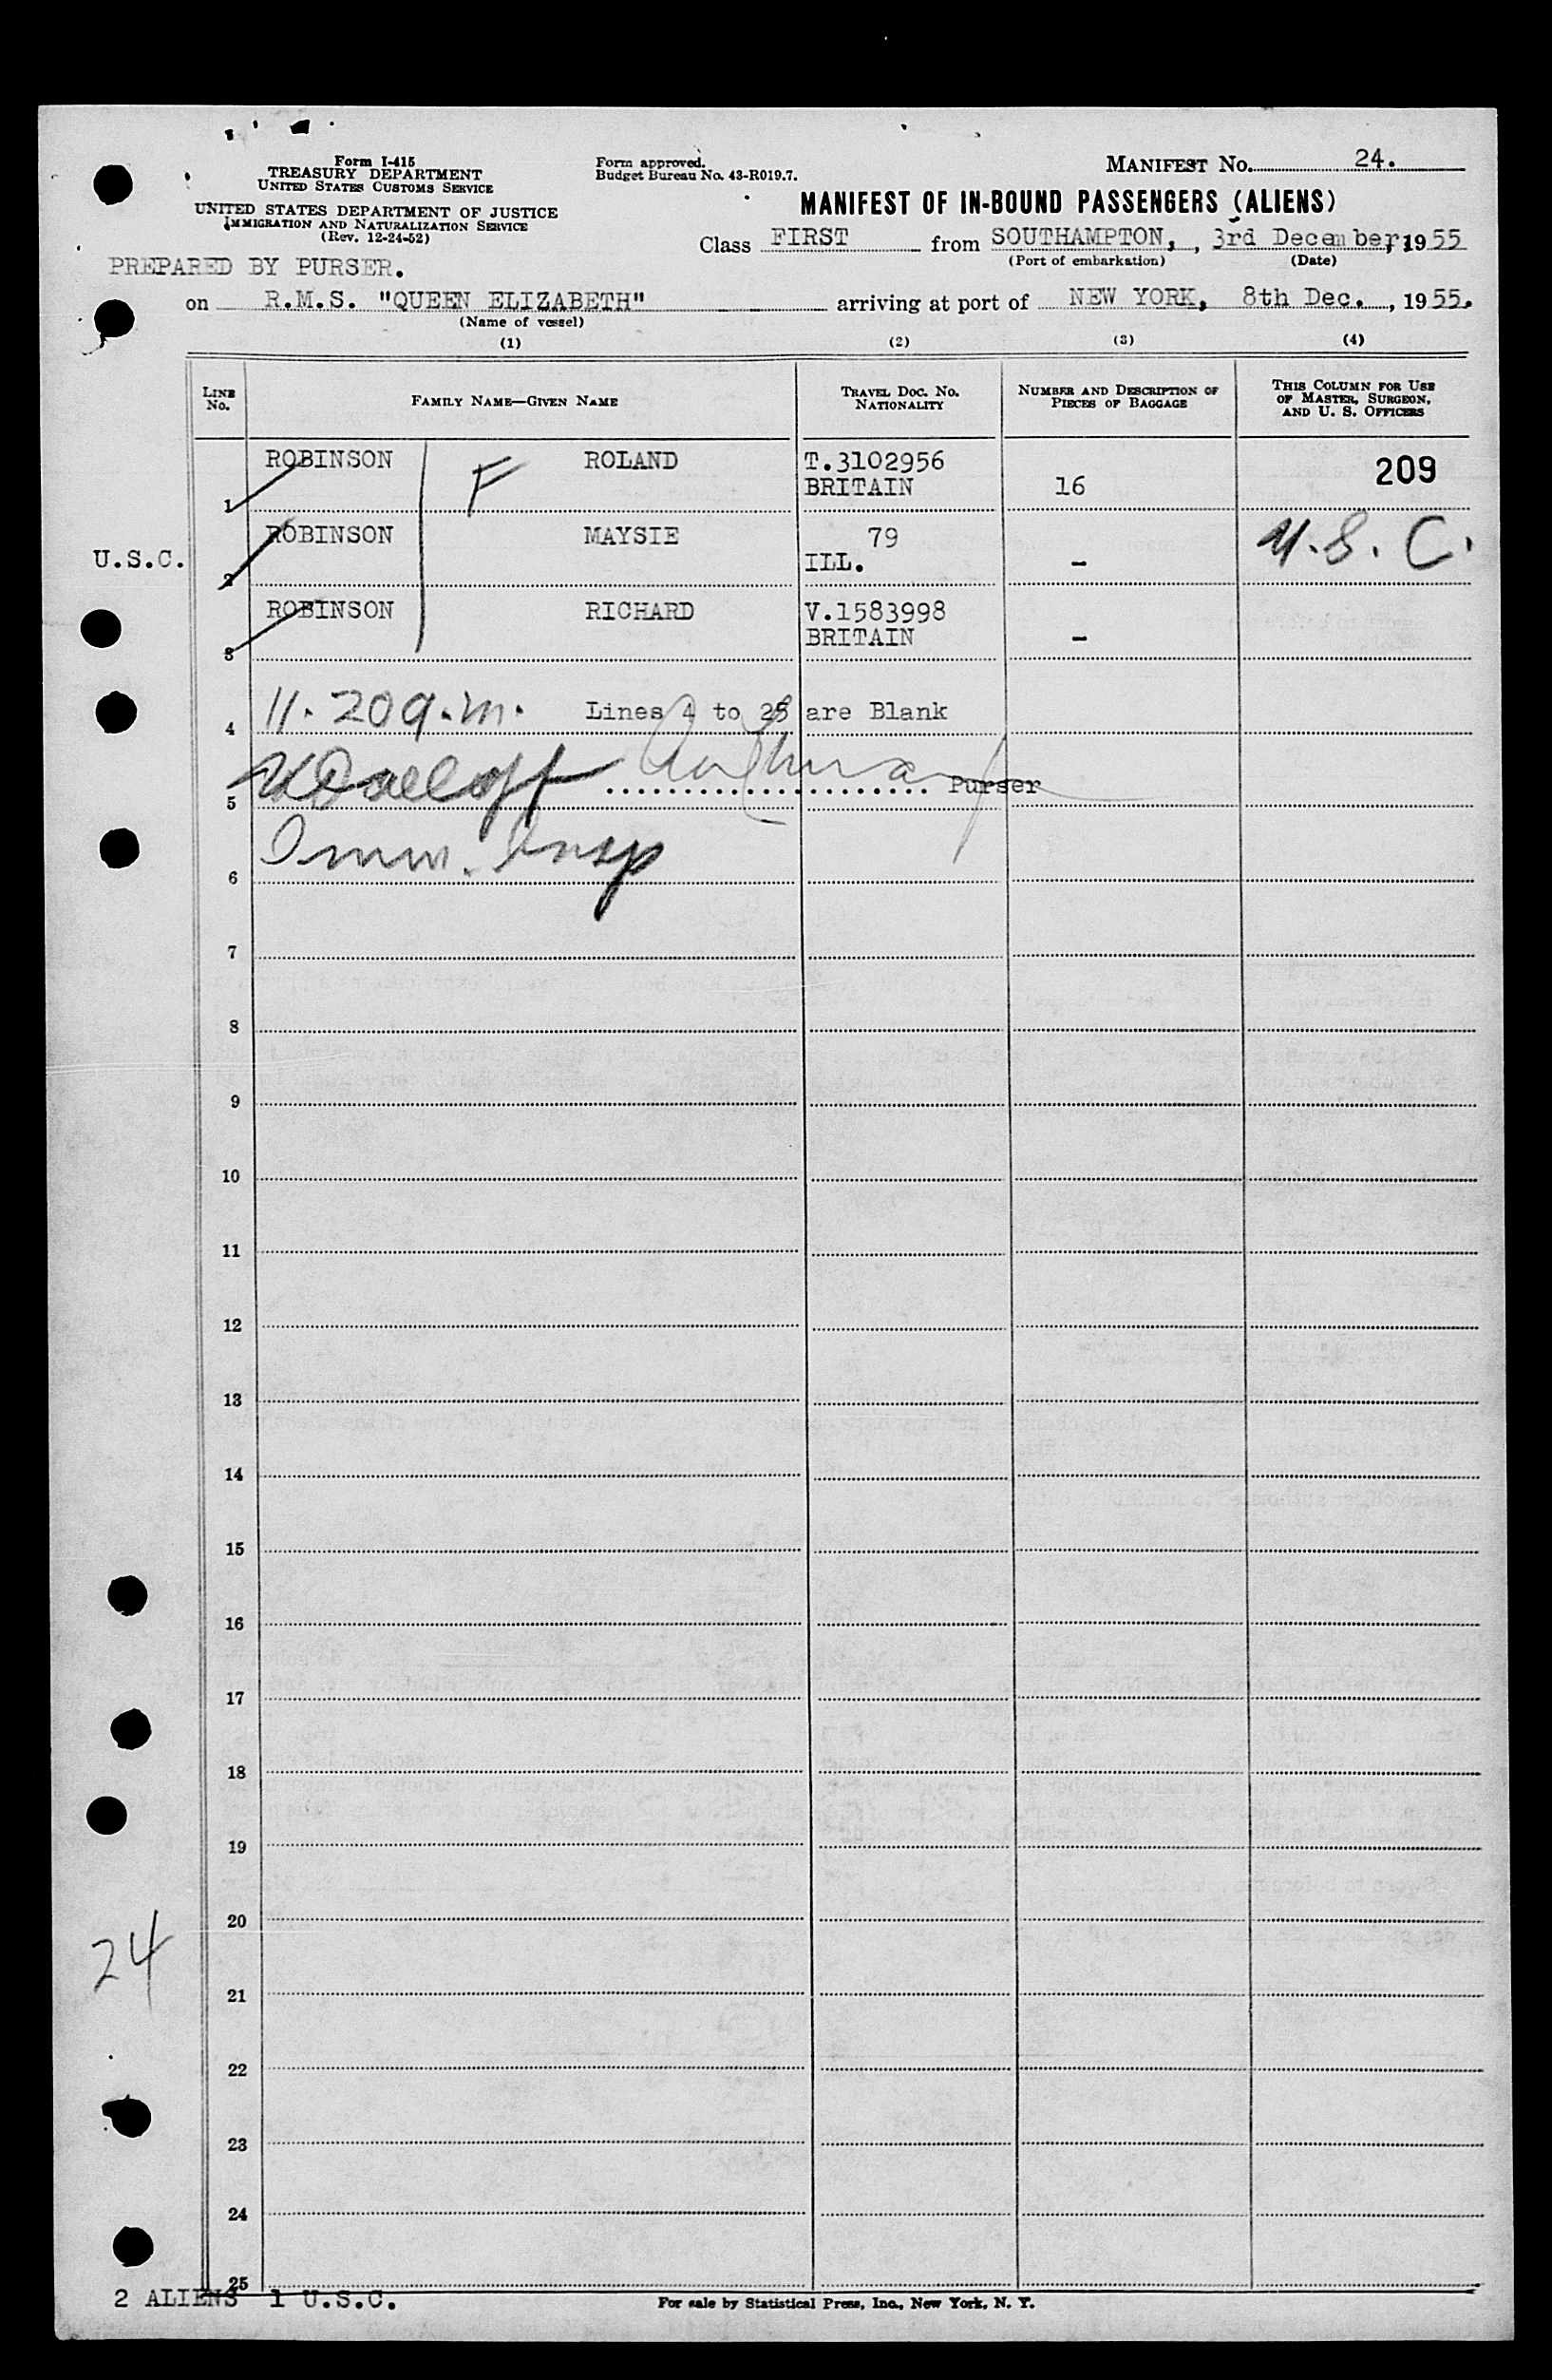 Form I-415
TREASURY DEPARTMENT
UNITED STATES CUSTOMS SERVICE
UNITED STATES DEPARTMENT OF JUSTICE
IMMIGRATION AND NATURALIZATION SERVICE
(Rev. 12-24-52)
Form approved.
Budget Bureau No. 43-R019.7.
MANIFEST No. 24.
MANIFEST OF IN-BOUND PASSENGERS (ALIENS)
Class FIRST from SOUTHAMPTON, , 3rd December, 1955
(Port of embarkation) (Date)
PREPARED BY PURSER.
on R.M.S. "QUEEN ELIZABETH" arriving at port of NEW YORK, 8th Dec. , 1955.
(Name of vessel)
(1) (2) (3) (4)
LINE No. FAMILY NAME—GIVEN NAME TRAVEL DOC. No. NATIONALITY NUMBER AND DESCRIPTION OF PIECES OF BAGGAGE THIS COLUMN FOR USE OF MASTER, SURGEON, AND U. S. OFFICERS
ROBINSON F ROLAND T.3102956 209
1 BRITAIN 16
ROBINSON MAYSIE 79 U.S.C.
U.S.C. 2 ILL. -
ROBINSON RICHARD V.1583998
3 BRITAIN -
4 11.20 a.m. Lines 4 to 25 are Blank
5 Purser
6 Imm. Insp
7
8
9
10
11
12
13
14
15
16
17
18
19
20
24
21
22
23
24
25
2 ALIENS 1 U.S.C.
For sale by Statistical Press, Inc., New York, N. Y.